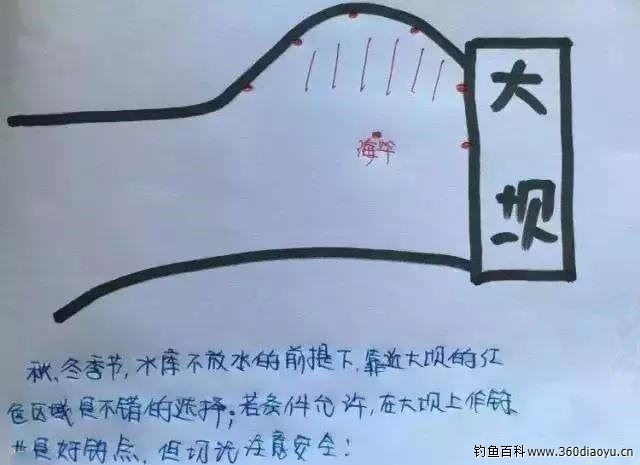 大坝
海竿
秋、冬季节,水库不放水的前提下,靠近大坝的红
色区域是不错的选择;若条件允许,在大坝上作钓
也是好钓点,但切记注意安全!
钓鱼百科www.360diaoyu.cn